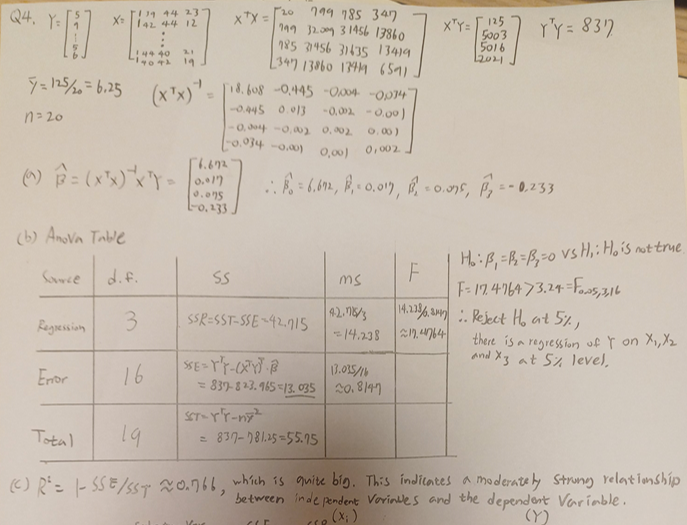 Q4. Y = [5 9 ⋮ 5 6] X = [1 39 44 23 1 42 44 12 ⋮ 1 44 40 21 1 40 42 19] XᵀX = [20 799 785 347 799 32009 31456 13860 785 31456 31635 13419 347 13860 13419 6591] XᵀY = [125 5003 5016 2021] YᵀY = 837
ȳ = 125/20 = 6.25 (XᵀX)⁻¹ = [18.608 -0.445 -0.004 -0.034 -0.445 0.013 -0.002 -0.001 -0.004 -0.002 0.002 0.001 -0.034 -0.001 0.001 0.002]
n = 20
(a) β̂ = (XᵀX)⁻¹XᵀY = [6.672 0.017 0.075 -0.233] ∴ β̂₀ = 6.672, β̂₁ = 0.017, β̂₂ = 0.075, β̂₃ = -0.233
(b) Anova Table
Source d.f. SS MS F
Regression 3 SSR = SST - SSE = 42.715 42.715/3 = 14.238 14.238/0.8147 ≈ 17.4764
Error 16 SSE = YᵀY - (XᵀY)ᵀ·β̂ = 837 - 823.965 = 13.035 13.035/16 ≈ 0.8147
Total 19 SST = YᵀY - nȳ² = 837 - 781.25 = 55.75
H₀: β₁ = β₂ = β₃ = 0 vs H₁: H₀ is not true
F = 17.4764 > 3.24 = F₀.₀₅,₃,₁₆
∴ Reject H₀ at 5%,
there is a regression of Y on X₁, X₂
and X₃ at 5% level.
(c) R² = 1 - SSE/SST ≈ 0.766, which is quite big. This indicates a moderately strong relationship
between independent Variables and the dependent Variable.
(Xᵢ) (Y)